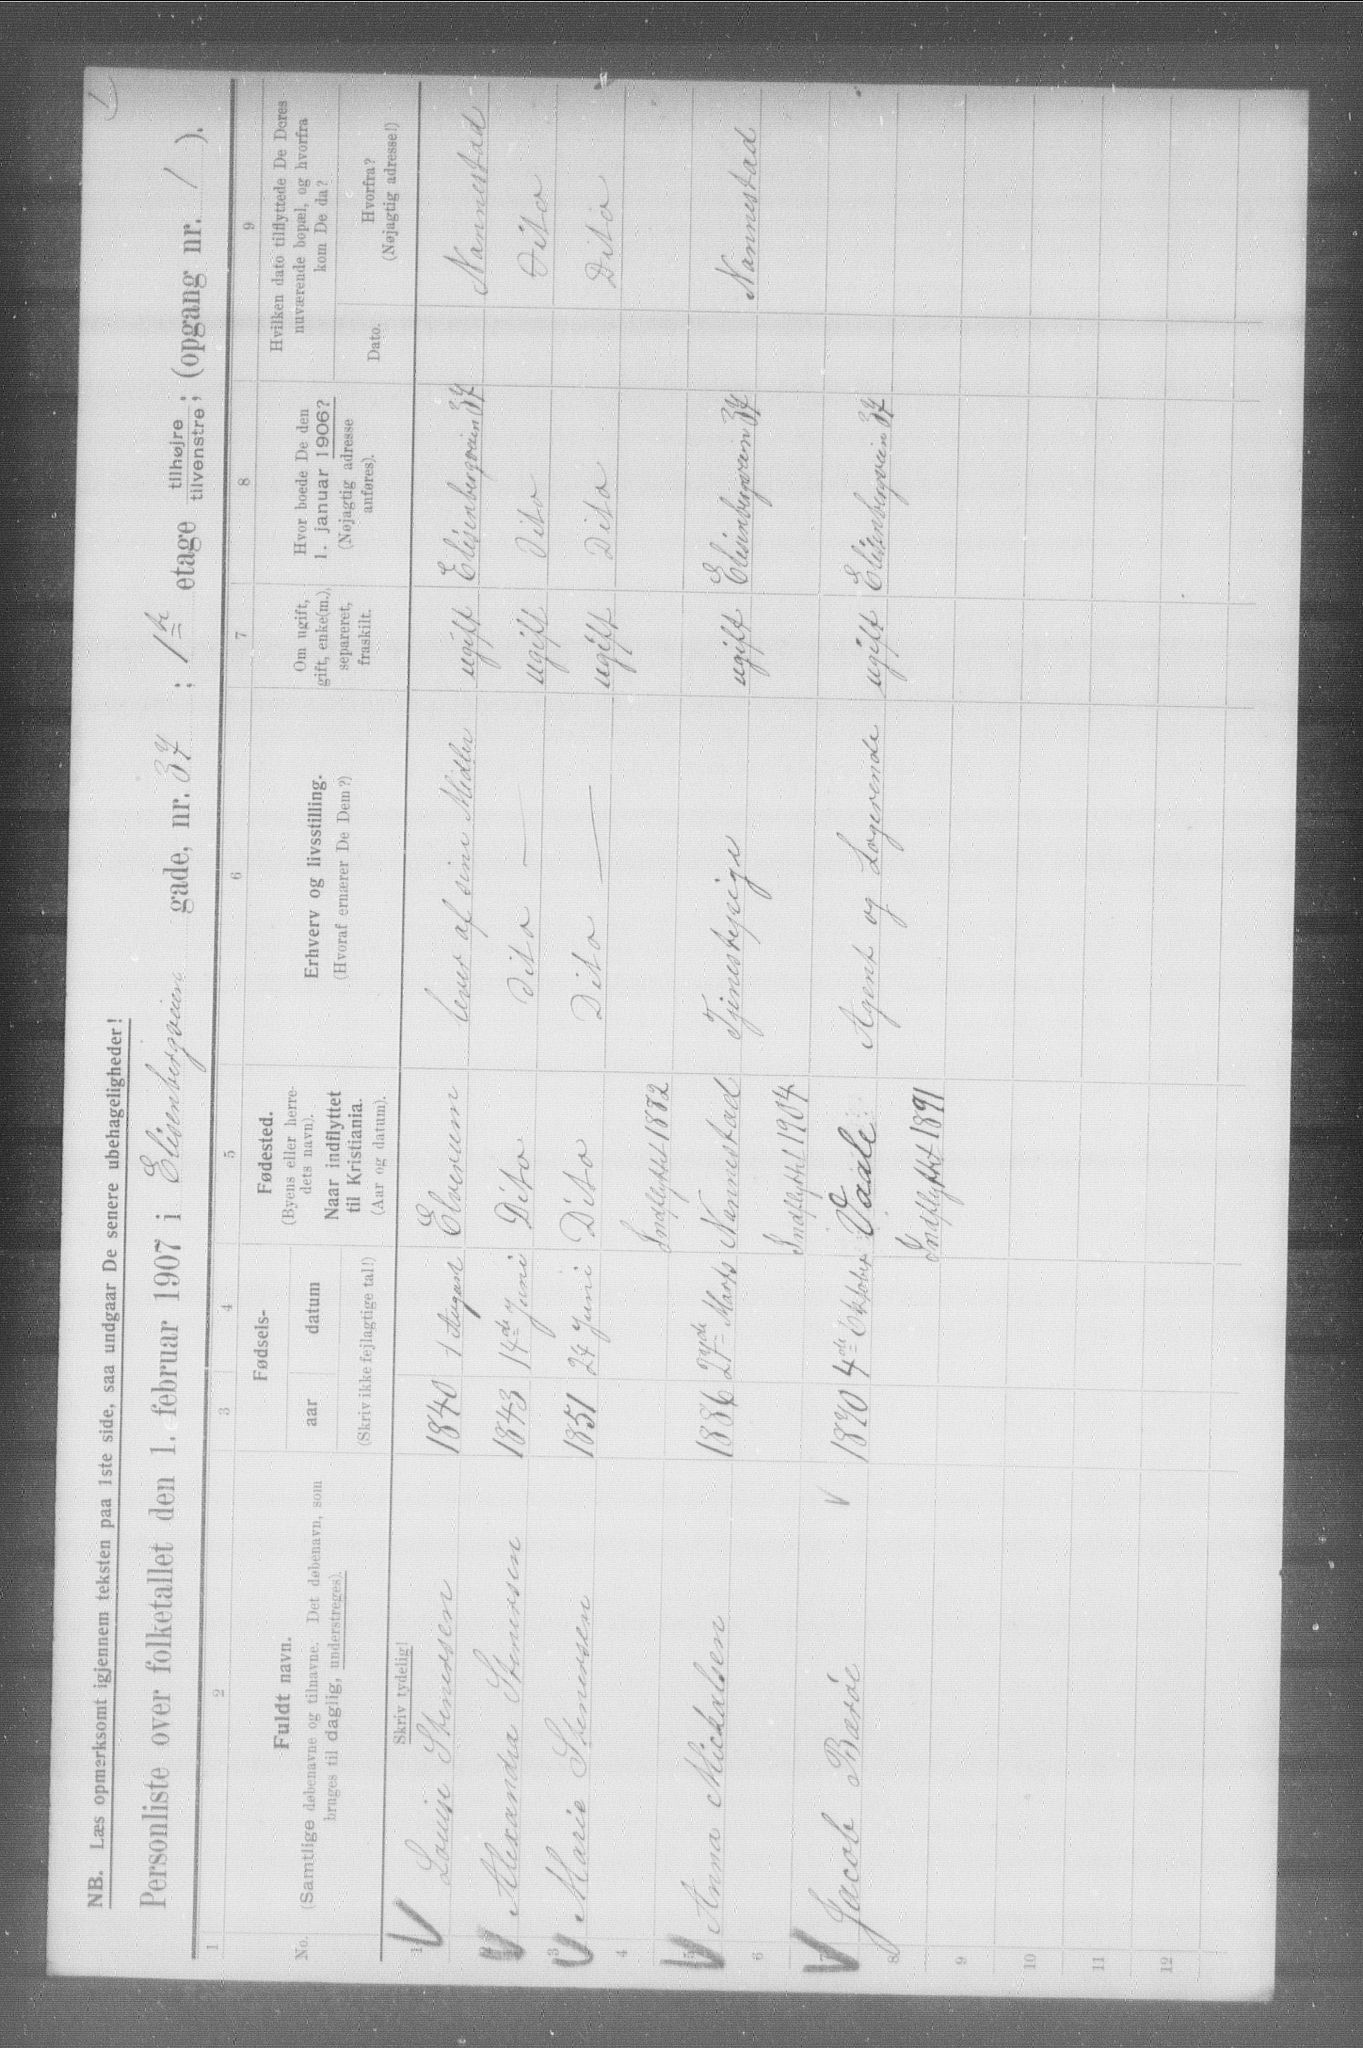 NB. Læs opmærksomt igjennem teksten paa 1ste side, saa undgaar De senere ubehageligheder!
Personliste over folketallet den 1. februar 1907 i Elisenbergveien gade, nr. 37 ; 1ste etage tilhøjre tilvenstre; (opgang nr. 1 ).
1 2 3 4 5 6 7 8 9
No.
Fuldt navn.
(Samtlige døbenavne og tilnavne. Det døbenavn, som
bruges til daglig, understreges).
Fødsels-
aar datum
(Skriv ikke fejlagtige tal!)
Fødested.
(Byens eller herre-
dets navn).
Naar indflyttet
til Kristiania.
(Aar og datum).
Erhverv og livsstilling.
(Hvoraf ernærer De Dem?)
Om ugift,
gift, enke(m.),
separeret,
fraskilt.
Hvor boede De den
1. januar 1906?
(Nøjagtig adresse
anføres).
Hvilken dato tilflyttede De Deres
nuværende bopæl, og hvorfra
kom De da?
Dato.
Hvorfra?
(Nøjagtig adresse!)
Skriv tydelig!
1 Louise Stenersen 1840 1 August Elverum lever af sine Midler ugift Elisenbergveien 37 Nannestad
2 Alexandra Stenersen 1843 14de Juni Dito Dito — ugift Dito Dito
3 Marie Stenersen 1851 24 Juni Dito Dito — ugift Dito Dito
4 Indflyttet 1882
5 Anna Mickalsen 1886 27nde Marts Nannestad Tjenestepige ugift Elisenbergveien 37 Nannestad
6 Indflyttet 1904
7 Jacob Barøe 1870 4de Oktober Vaale Agent og Logerende ugift Elisenbergveien 37
8 Indflyttet 1891
9
10
11
12